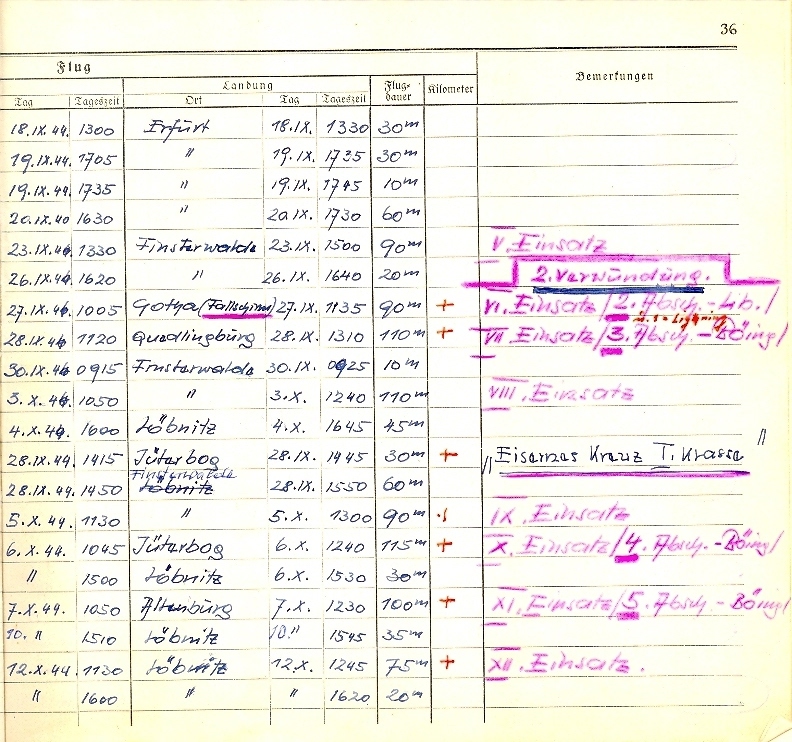 36
Flug
Landung
Flug-dauer
Kilometer
Bemerkungen
Tag Tageszeit Ort Tag Tageszeit
18.IX.44. 1300 Erfurt 18.IX. 1330 30m
19.IX.44. 1705 " 19.IX. 1735 30m
19.IX.44. 1735 " 19.IX. 1745 10m
20.IX.40 1630 " 20.IX. 1730 60m
23.IX.44. 1330 Finsterwalde 23.IX. 1500 90m V. Einsatz
26.IX.44. 1620 " 26.IX. 1640 20m 2. Verwundung.
27.IX.44. 1005 Gotha (Fallschirm) 27.IX. 1135 90m + VI. Einsatz/2. Absch.-Lib./
28.IX.44 1120 Quedlingburg 28.IX. 1310 110m + VII Einsatz/3. Absch.-Böing/
Lightning
30.IX.44 0915 Finsterwalde 30.IX. 0925 10m
3.X.44. 1050 " 3.X. 1240 110m VIII. Einsatz
4.X.44. 1600 Löbnitz 4.X. 1645 45m
28.IX.44. 1415 Jüterbog 28.IX. 1445 30m + "Eisernes Kreuz I. Klasse"
Finsterwalde
28.IX.44. 1450 Löbnitz 28.IX. 1550 60m
5.X.44. 1130 " 5.X. 1300 90m IX. Einsatz
6.X.44. 1045 Jüterbog 6.X. 1240 115m + X. Einsatz/4. Absch.-Böing/
" 1500 Löbnitz 6.X. 1530 30m
7.X.44. 1050 Altenburg 7.X. 1230 100m + XI. Einsatz/5. Absch-Böing/
10. " 1510 Löbnitz 10." 1545 35m
12.X.44. 1130 Löbnitz 12.X. 1245 75m + XII. Einsatz.
" 1600 " " 1620 20m